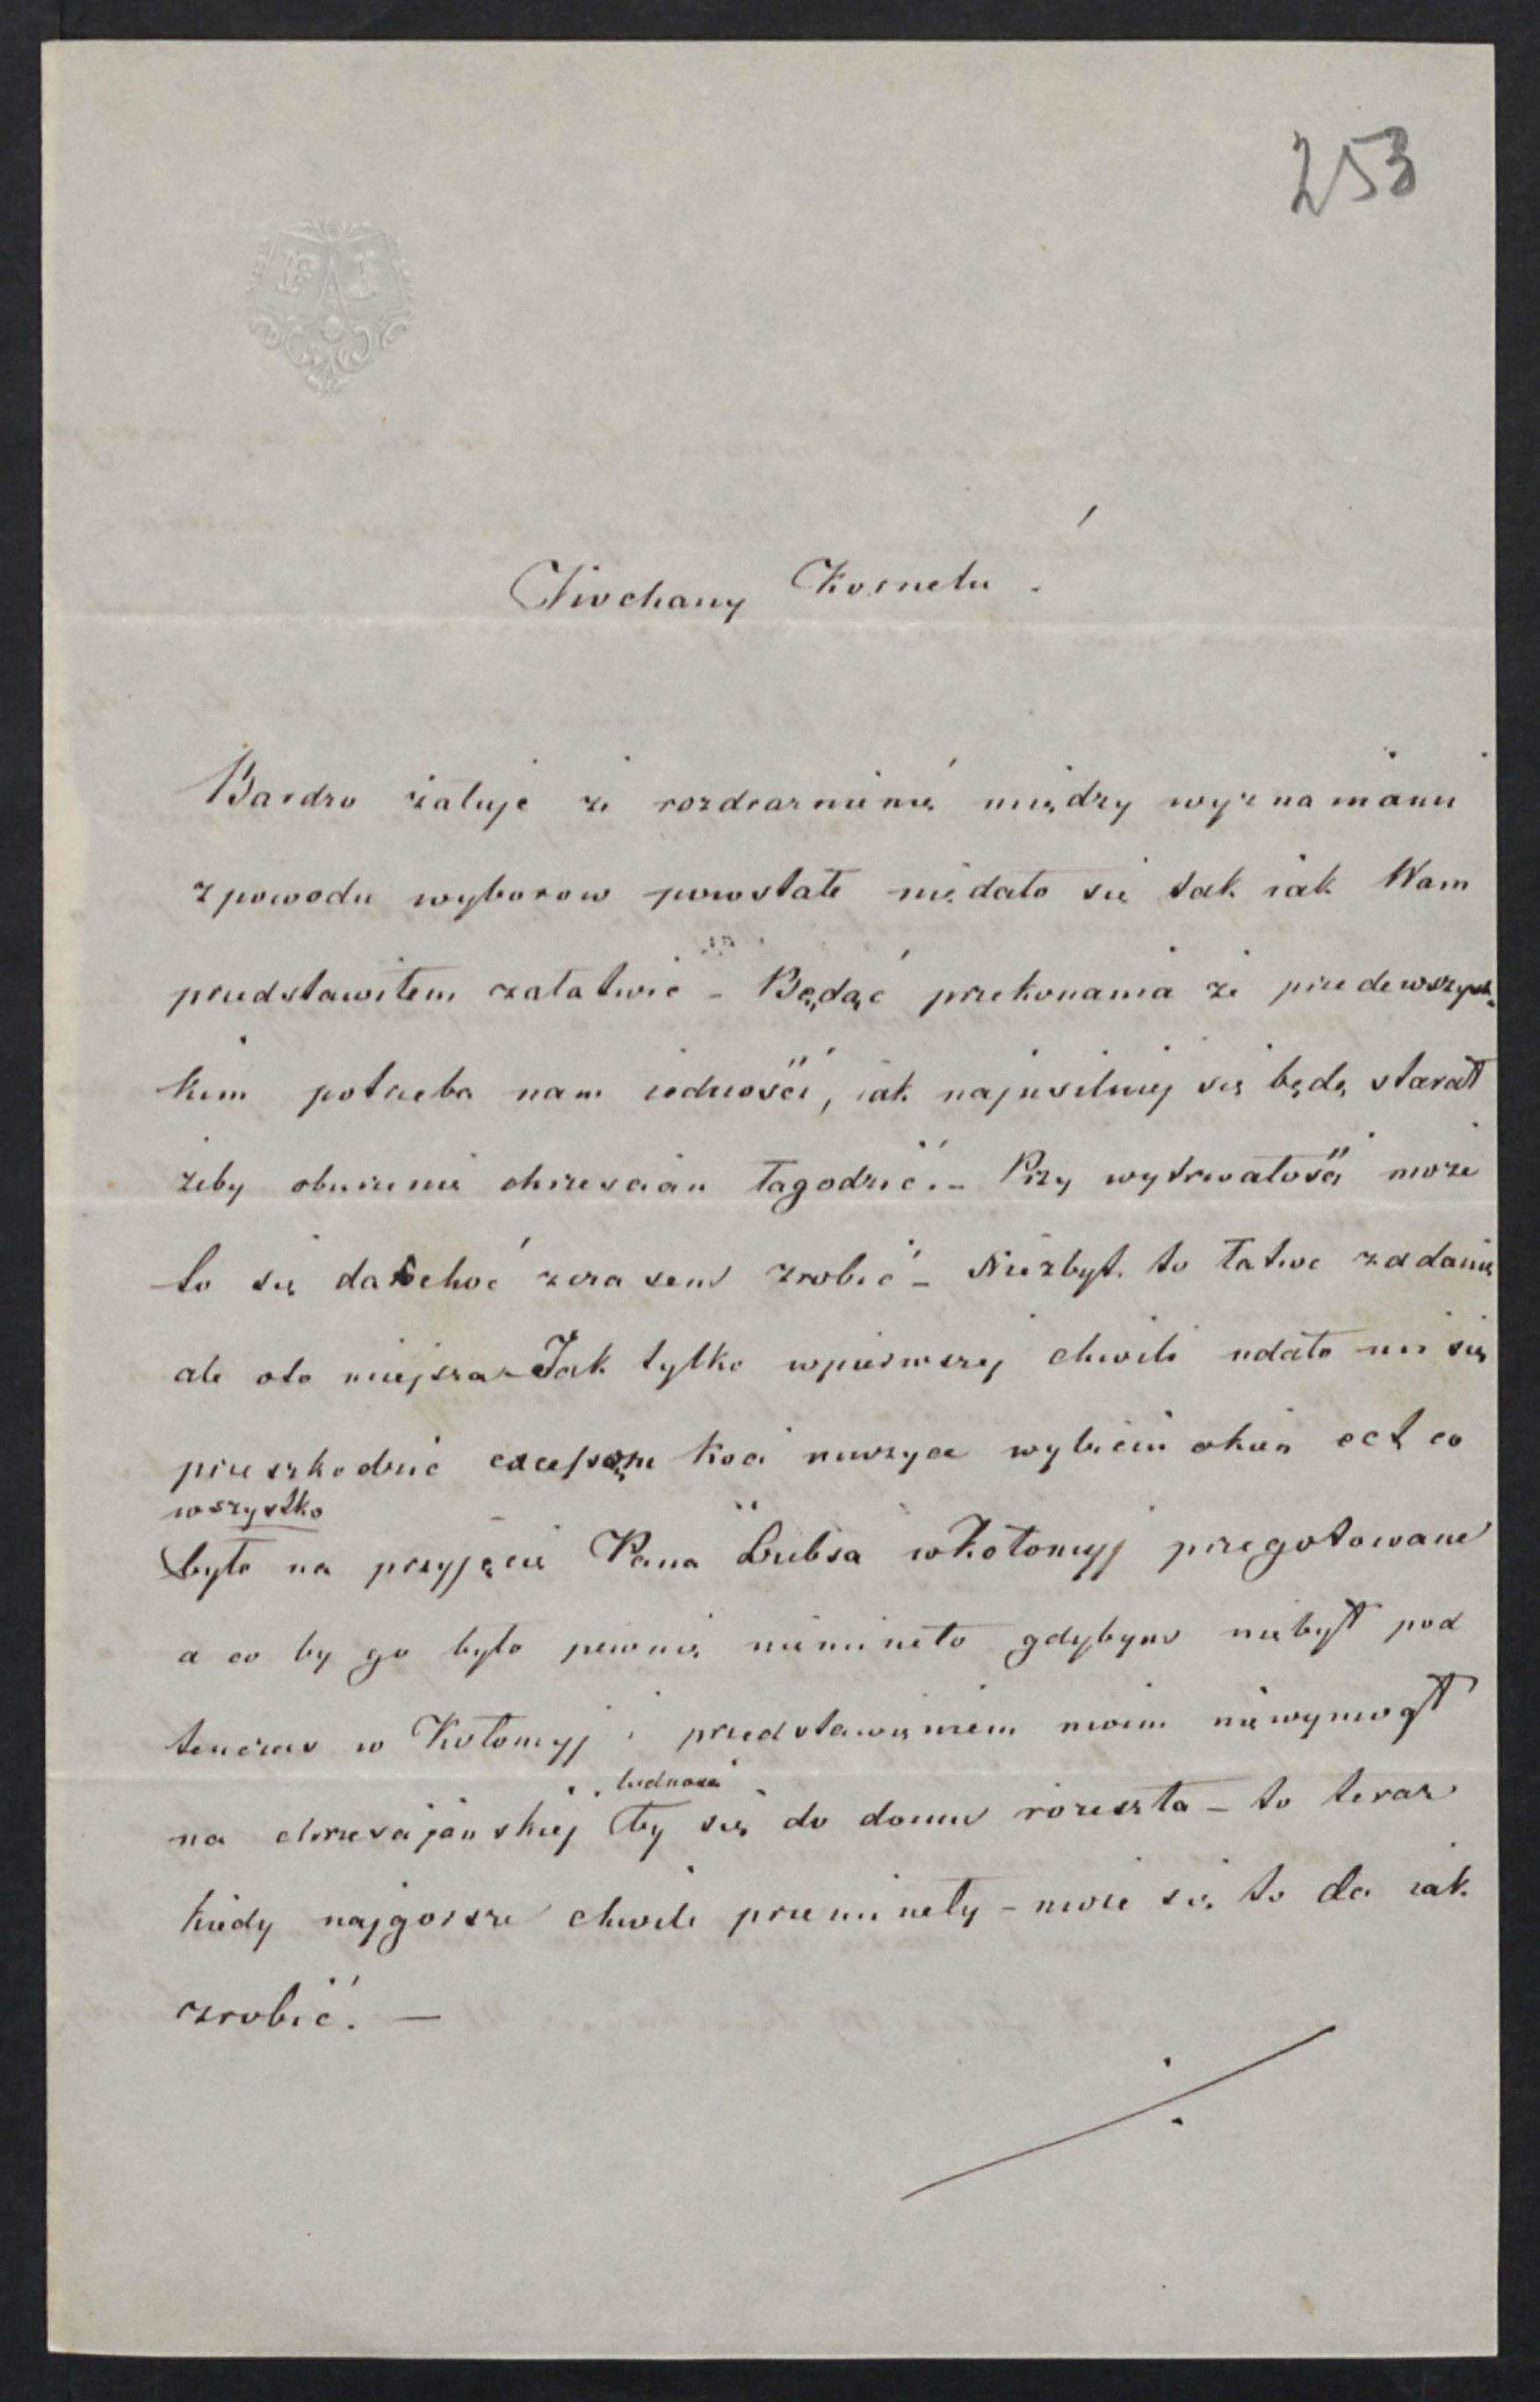 253
Kochany Kornelu!
Bardzo żałuję że rozdraznienie między wyznaniami
z powodu wyborow powstałe niedało się tak iak Wam
przedstawiłem załatwić – Będąc przekonania że przedewszyst
kiem potrzeba nam iedności, iak najusilniej się będę starał
żeby oburzenie chrzescian łagodzić. – Przy wytrwałości może
to się da choć z czasem zrobić – Niezbyt to łatwe zadanie
ale oto mniejsza – Jak tylko wpierwszej chwili udało mi się
przeszkodzić kociej muzyce wybiciu okien ect co
wszystko
było na przyjęcie Pana w Kołomyj przegotowane
a co by go było pewnie nieminęło gdybym niebył pod
tenczas w Kołomyj i przedstawieniem moim niewymógł
na chrzescijanskiej ludności by się do domu rozeszła – to teraz
kiedy najgorsze chwile przeminęły – może się to da iak
zrobić. —